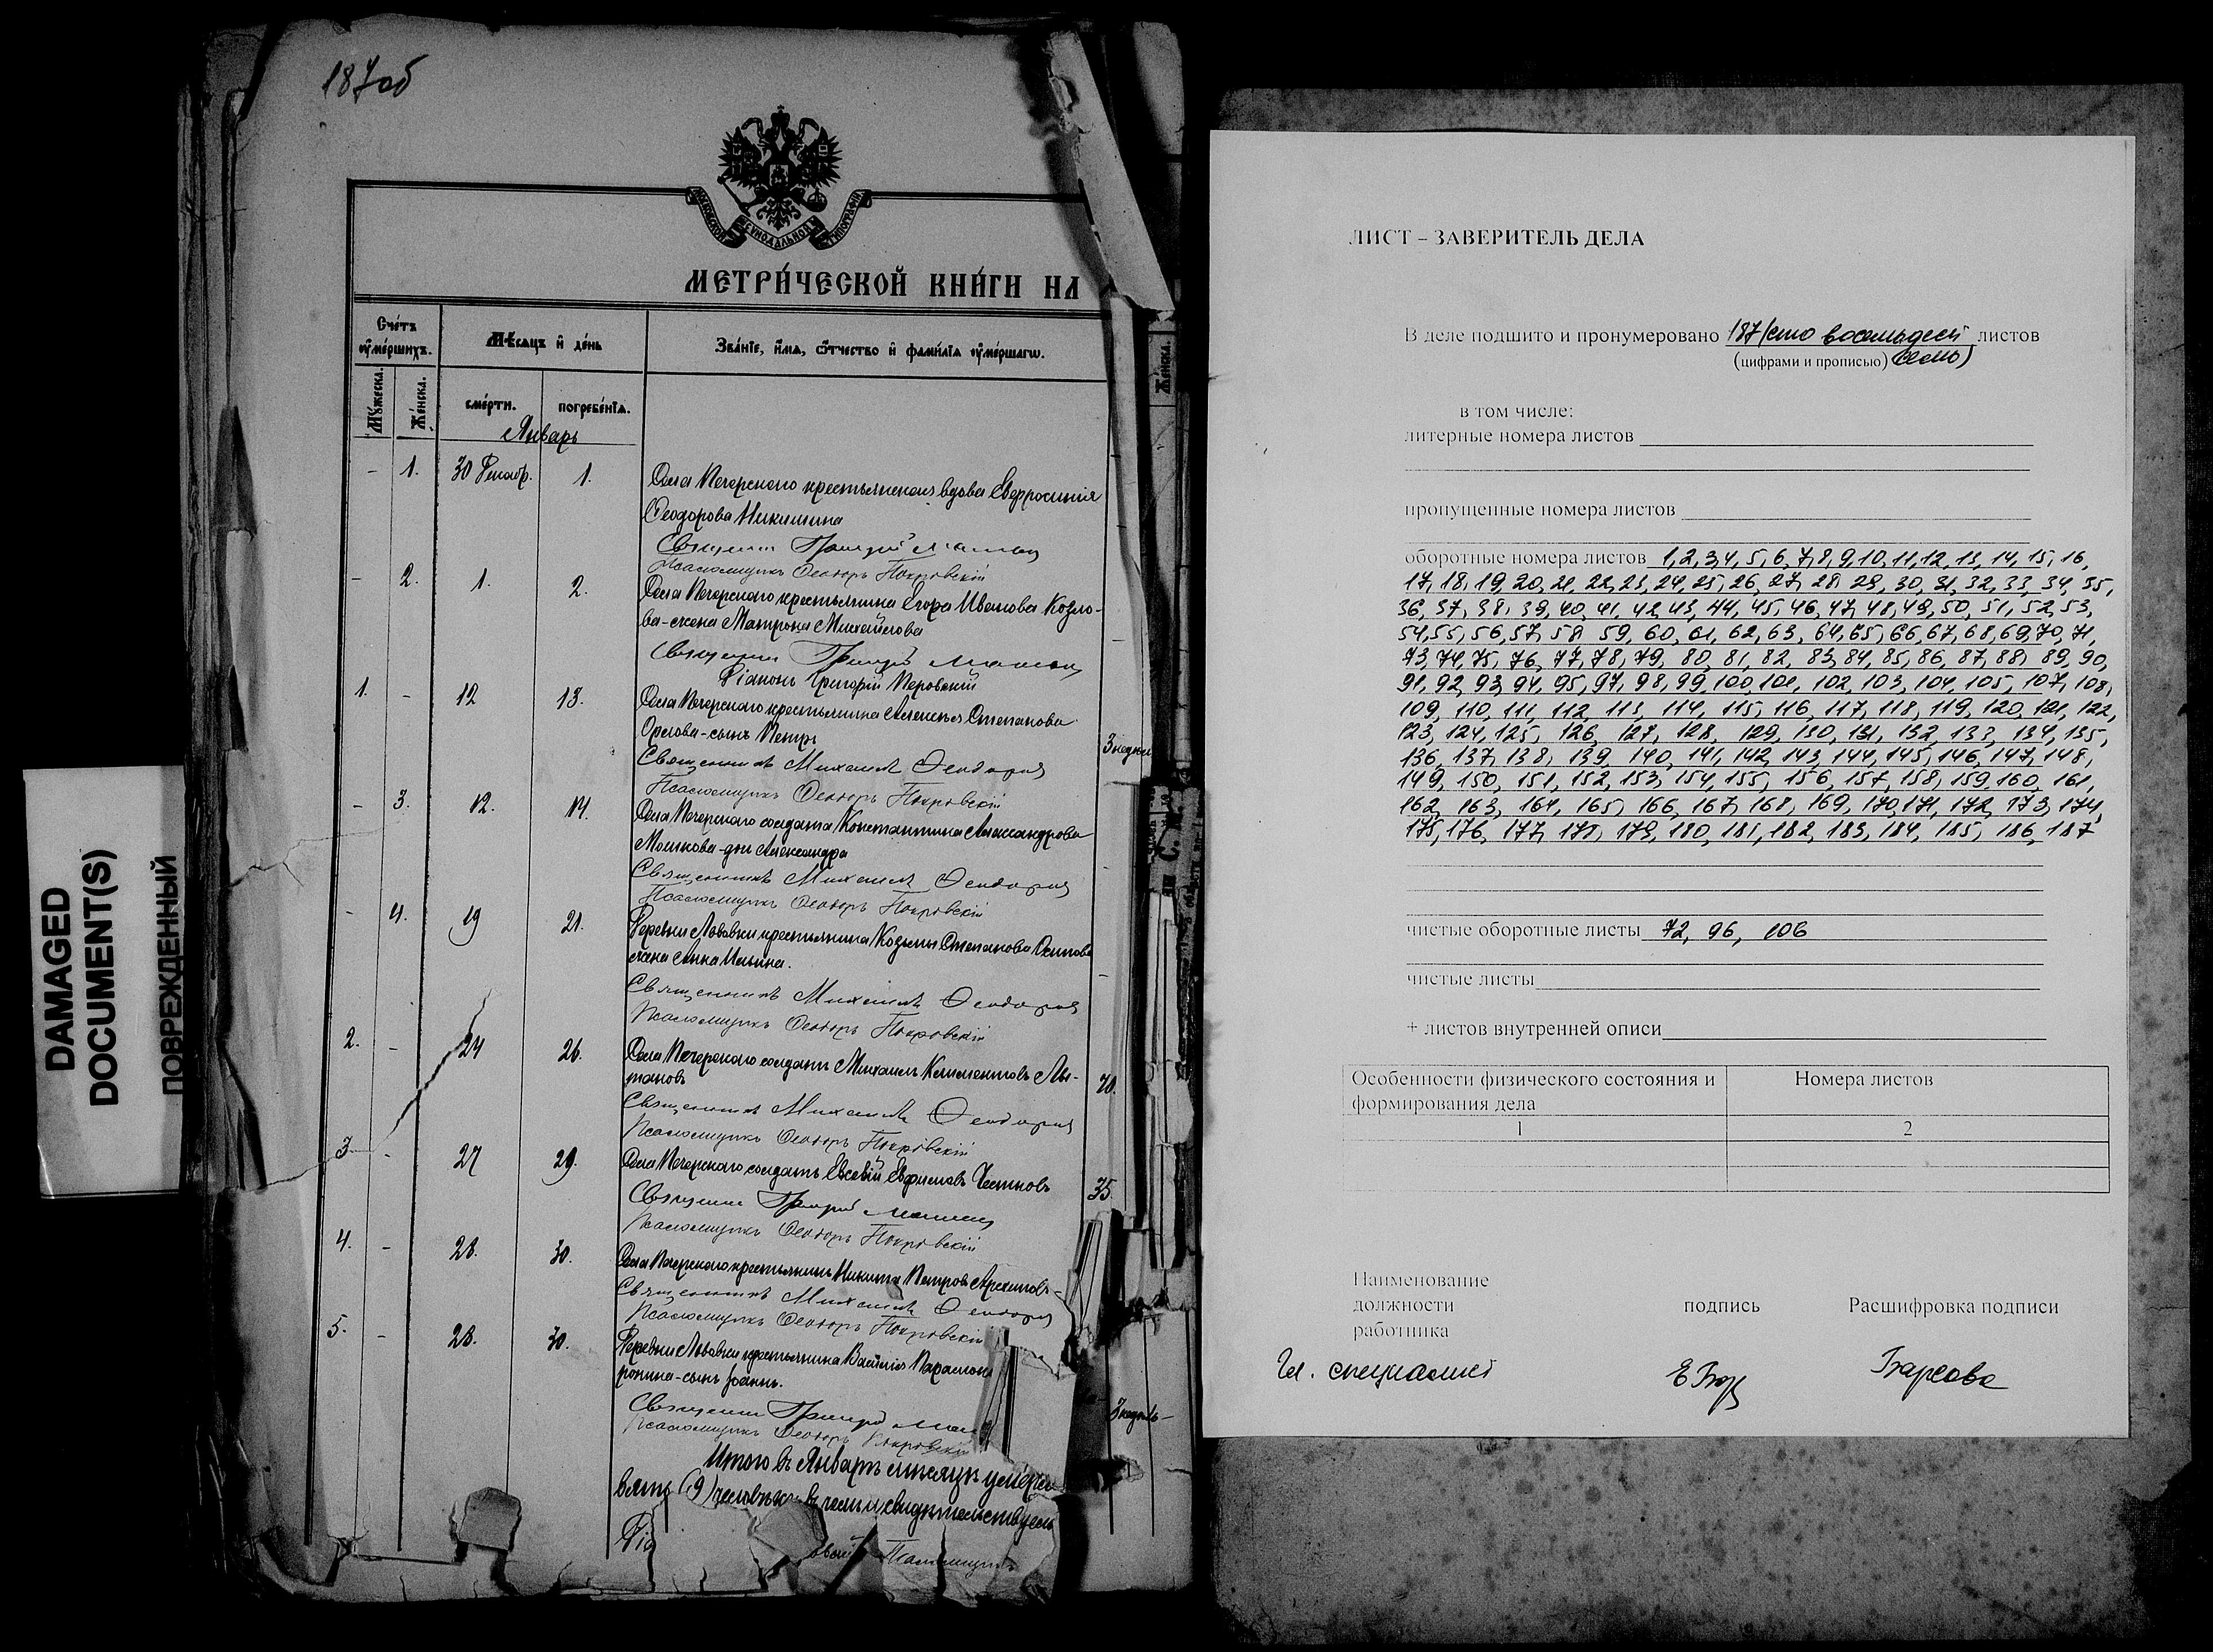 187об
МОСКОВСКОЙ СУНОДАЛЬНОЙ ТИПОГРАФІИ
МЕТРИ́ЧЕСКОЙ КНИ́ГИ НА
Сче́тъ ᲂу҆ме́ршихъ.
Мѣ́сяцъ и҆ де́нь
Зва́нїе, и҆́мя, ѻ҆́тчество и҆ фами́лїя ᲂу҆ме́ршагѡ.
Же́нска.
Му́жеска.
Же́нска.
сме́рти.
погребе́нїя.
Январь
- 1. 30 Декабр. 1. Села Печерскаго крестьянская вдова Евфросинія
Ѳеодорова Никишина
Священникъ Григорій
Псаломщикъ Ѳеодоръ Покровскій
- 2. 1. 2. Села Печерскаго крестьянина Егора Иванова Козло-
ва-жена Матрона Михайлова
Священникъ Григорій
Діаконъ Григорій Перовскій
1. - 12 13. Села Печерскаго крестьянина Алексѣя Степанова
Орлова-сынъ Петръ
3 недѣли
Священникъ Михаилъ
Псаломщикъ Ѳеодоръ Покровскій
- 3. 12. 14. Села Печерскаго солдата Константина Александрова
Мошкова-дочь Александра
Священникъ Михаилъ
Псаломщикъ Ѳеодоръ Покровскій
- 4. 19 21. Деревни крестьянина Козьмы Степанова Осипова
жена Анна Ильина.
Священникъ Михаилъ
Псаломщикъ Ѳеодоръ Покровскій
2. - 24 26. Села Печерскаго солдатъ Михаилъ Климентовъ Лы-
70.
Священникъ Михаилъ
Псаломщикъ Ѳеодоръ Покровскій
3. - 27 29. Села Печерскаго солдатъ Евсевій
35.
Священникъ Григорій
Псаломщикъ Ѳеодоръ Покровскій
4. - 28. 30. Села Печерскаго крестьянинъ Никита Петровъ Архиповъ
Священникъ Михаилъ
Псаломщикъ Ѳеодоръ Покровскій
5. - 28. 30. Деревни крестьянина Василія
-сынъ Іоаннъ.
3 недѣль
Священникъ Григорій
Псаломщикъ Ѳеодоръ Покровскій
Итого въ Январѣ мѣсяцѣ умерло
вять (9) человѣкъ въ чемъ и свидѣтельствуемъ
Псаломщикъ
DAMAGED
DOCUMENT(S)
ПОВРЕЖДЕННЫЙ
ЛИСТ – ЗАВЕРИТЕЛЬ ДЕЛА
В деле подшито и пронумеровано 187 (сто восемьдесят листов
(цифрами и прописью) семь)
в том числе:
литерные номера листов
пропущенные номера листов
оборотные номера листов 1,2,3,4,5,6,7,8,9,10,11,12,13,14,15,16,
17,18,19,20,21,22,23,24,25,26,27,28,29,30,31,32,33,34,35,
36,37,38,39,40,41,42,43,44,45,46,47,48,49,50,51,52,53,
54,55,56,57,58 59,60,61,62,63,64,65,66,67,68,69,70,71,
73,74,75,76,77,78,79,80,81,82,83,84,85,86,87,88,89,90,
91,92,93,94,95,97,98,99,100,101,102,103,104,105,107,108,
109,110,111,112,113,114,115,116,117,118,119,120,121,122,
123,124,125,126,127,128,129,130,131,132,133,134,135,
136,137,138,139,140,141,142,143,144,145,146,147,148,
149,150,151,152,153,154,155,156,157,158,159,160,161,
162,163,164,165,166,167,168,169,170,171,172,173,174,
175,176,177,178,179,180,181,182,183,184,185,186,187
чистые оборотные листы 72, 96, 106
чистые листы
+ листов внутренней описи
Особенности физического состояния и формирования дела
Номера листов
1 2
Наименование
должности
работника
подпись
Расшифровка подписи
Гл. специалист
Барсова